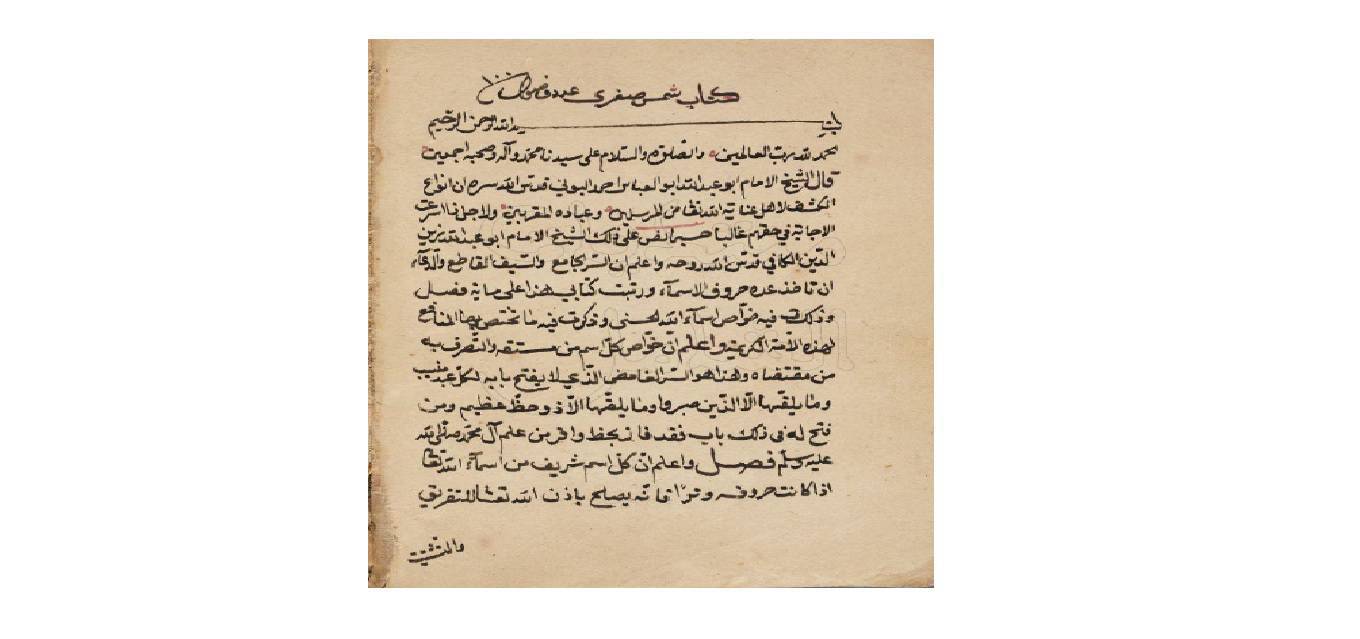 كتاب شمس صغرى عدد فصول ١٠٠
بسم الله الرحمن الرحيم
الحمد لله رب العالمين والصلوة والسلام على سيدنا محمد وآله وصحبه اجمعين
قال الشيخ الامام ابو عبد الله ابو العباس احمد البوني قدس الله سره ان انواع
الكشف لاهل عناية الله تعا من المرسلين وعباده المقربين ولاجل
الاجابة في حقهم غالبا نص على ذلك الشيخ الامام ابو عبد الله زين
الدين الكافي قدس الله روحه واعلم ان السر الجامع والسيف القاطع والدعاء
ان تاخذ عدد حروف الاسماء ورتبت كتابي هذا على ماية فصل
وذكرت فيه خواص اسماء الله الحسنى وذكرت فيه ما تختص بها المنافع
لهذه الامة الكريمة واعلم ان خواص كل اسم من مشتقه والتصرف به
من مقتضاه وهذا هو السر الغامض الذي لا يفتح بابه لكل عبد منيب
وما يلقيها الا الذين صبروا وما يلقيها الا ذو حظ عظيم ومن
فتح له في ذلك باب فقد فاز بحظ وافر من علم آل محمد صلى الله
عليه وسلم فصل واعلم ان كل اسم شريف من اسماء الله تعا
اذا كانت حروفه وترا فانه يصلح باذن الله تعا للتفريق
والتشتيت